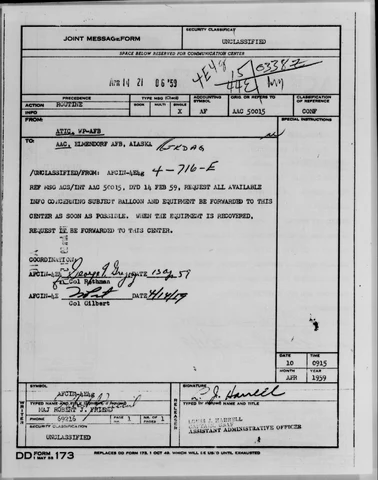 JOINT MESSAGEFORM
SECURITY CLASSIFICAT
UNCLASSIFIED
SPACE BELOW RESERVED FOR COMMUNICATION CENTER
APR 14 21 06 '59
4E48
15/0338Z
44E1
PRECEDENCE
TYPE MSG (Check)
ACCOUNTING SYMBOL
ORIG. OR REFERS TO
CLASSIFICATION OF REFERENCE
ACTION
ROUTINE
BOOK
MULTI
SINGLE
INFO
X
AF
AAC 50015
CONF
FROM:
ATIC, WP-AFB
TO:
AAC, ELMENDORF AFB, ALASKA
/UNCLASSIFIED/FROM: AFCIN-4E4g 4-716-E
REF MSG ACS/INT AAC 50015, DTD 14 FEB 59, REQUEST ALL AVAILABLE
INFO CONCERNING SUBJECT BALLOON AND EQUIPMENT BE FORWARDED TO THIS
CENTER AS SOON AS POSSIBLE. WHEN THE EQUIPMENT IS RECOVERED,
REQUEST IT BE FORWARDED TO THIS CENTER.
COORDINATION:
DATE
Col Rothman
AFCIN-4E DATE 4/14/59
Col Gilbert
DATE
TIME
10
0915
MONTH
YEAR
APR
1959
WRITER
SYMBOL
AFCIN-4E4g
TYPED NAME AND TITLE
MAJ ROBERT J. FRIEND
PHONE
69216
PAGE 1
NR. OF PAGES 1
SECURITY CLASSIFICATION
UNCLASSIFIED
RELEASER
SIGNATURE
TYPED NAME AND TITLE
HARRELL
ASSISTANT ADMINISTRATIVE OFFICER
DD FORM 1 MAY 55 173
REPLACES DD FORM 173, 1 OCT 49, WHICH WILL BE USED UNTIL EXHAUSTED